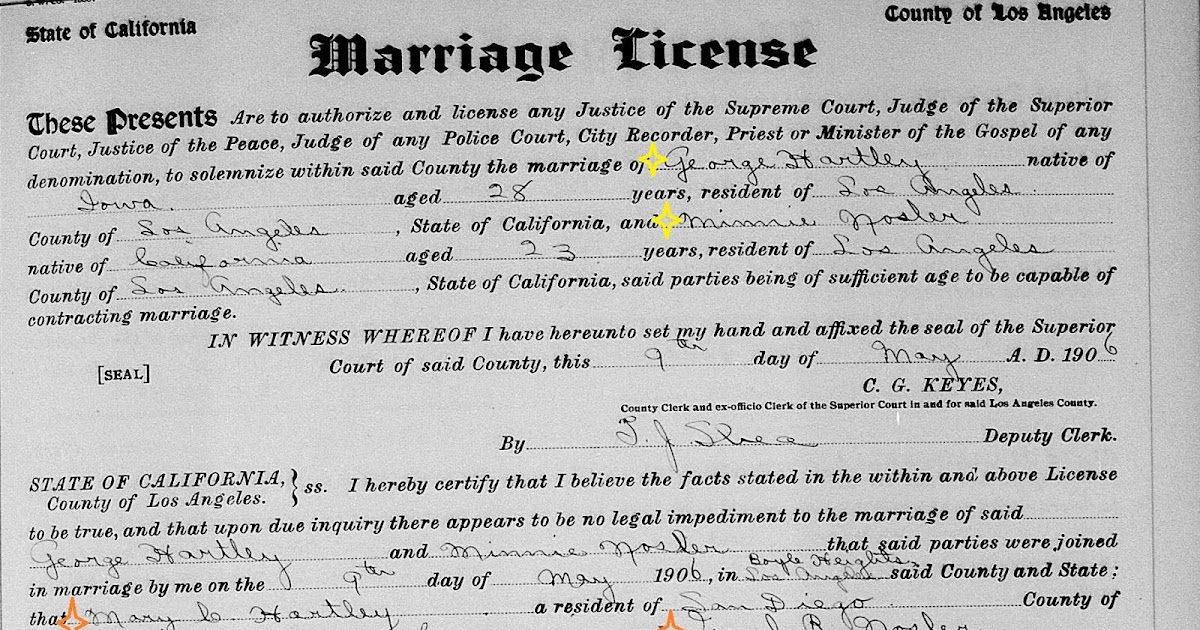 State of California
County of Los Angeles
Marriage License
These Presents Are to authorize and license any Justice of the Supreme Court, Judge of the Superior
Court, Justice of the Peace, Judge of any Police Court, City Recorder, Priest or Minister of the Gospel of any
denomination, to solemnize within said County the marriage of George Hartley native of
Iowa. aged 28 years, resident of Los Angeles
County of Los Angeles, State of California, and Minnie Nosler
native of California aged 23 years, resident of Los Angeles
County of Los Angeles, State of California, said parties being of sufficient age to be capable of
contracting marriage.
IN WITNESS WHEREOF I have hereunto set my hand and affixed the seal of the Superior
[SEAL] Court of said County, this 9th day of May A. D. 1906
C. G. KEYES,
County Clerk and ex-officio Clerk of the Superior Court in and for said Los Angeles County.
By T. J. Shea Deputy Clerk.
STATE OF CALIFORNIA, } ss. I hereby certify that I believe the facts stated in the within and above License
County of Los Angeles.
to be true, and that upon due inquiry there appears to be no legal impediment to the marriage of said
George Hartley and Minnie Nosler that said parties were joined
Boyle Heights,
in marriage by me on the 9th day of May 1906, in Los Angeles said County and State;
that Mary C Hartley a resident of San Diego County of
R Nosler